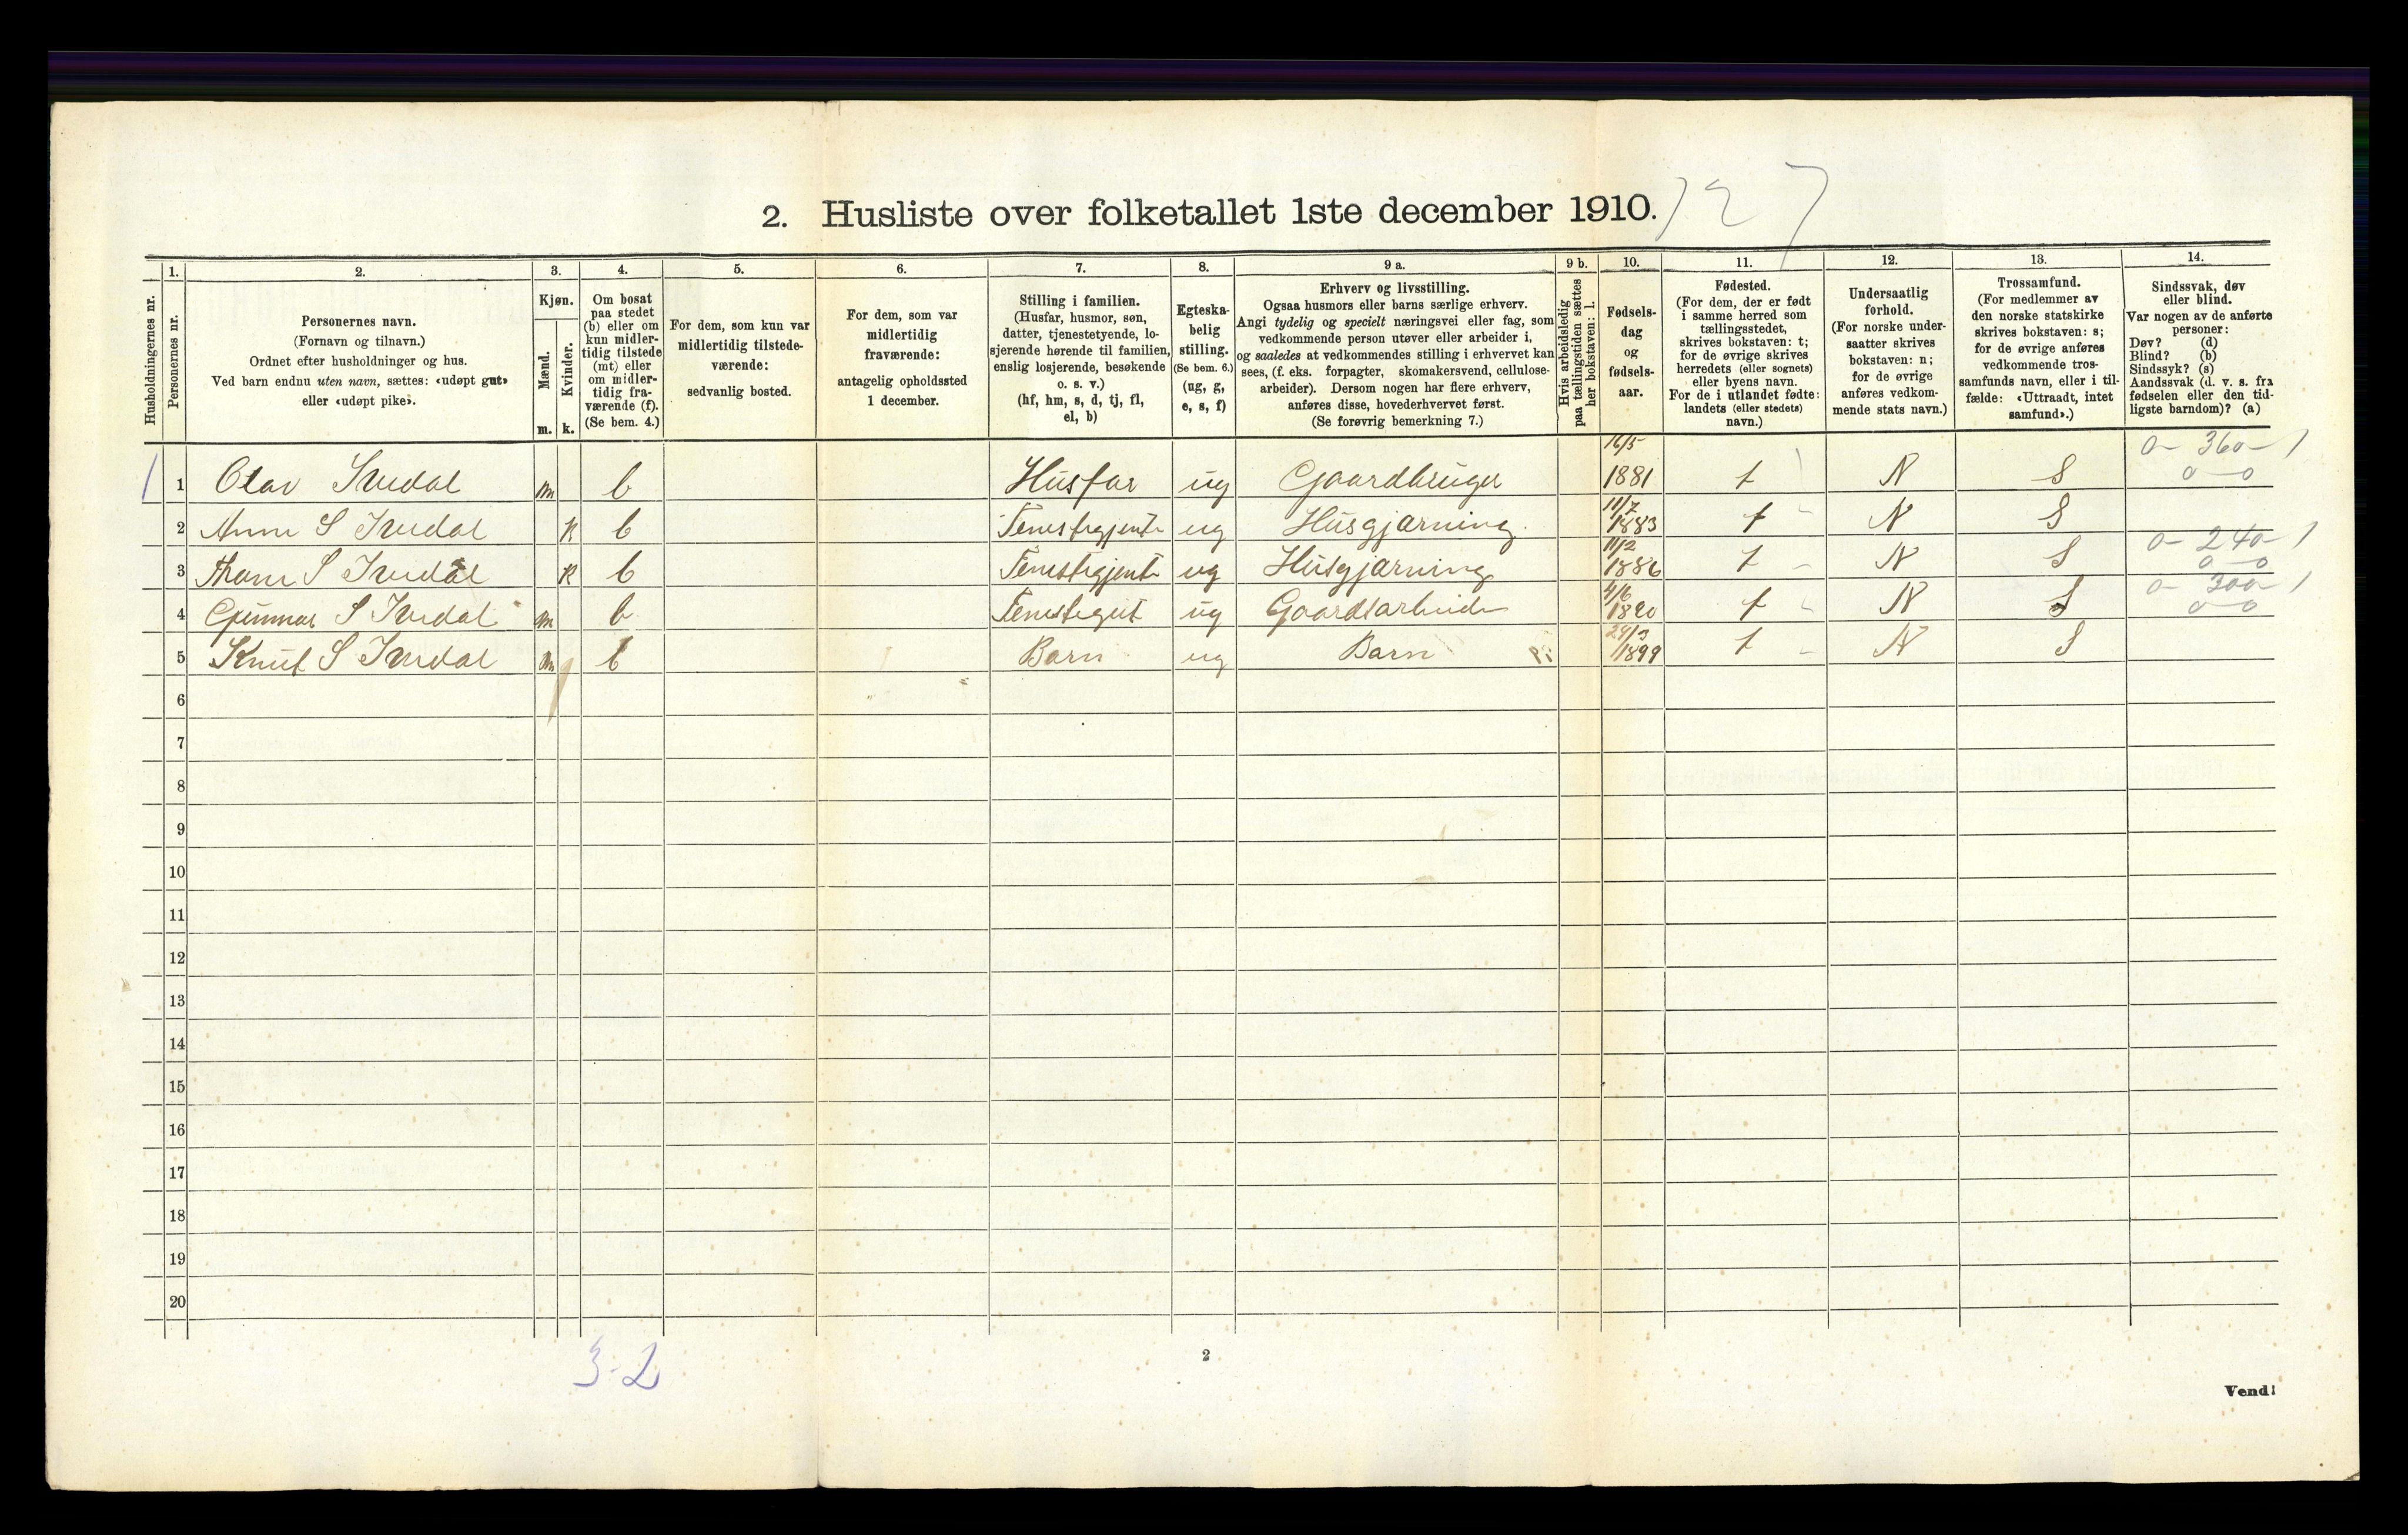 127
2. Husliste over folketallet 1ste december 1910.
Husholdningernes nr.
1.
Personernes nr.
2.
Personernes navn.
(Fornavn og tilnavn.)
Ordnet efter husholdninger og hus.
Ved barn endnu uten navn, sættes: «udøpt gut»
eller «udøpt pike».
3.
Kjøn.
Mænd.
Kvinder.
m. k.
4.
Om bosat
paa stedet
(b) eller om
kun midler-
tidig tilstede
(mt) eller
om midler-
tidig fra-
værende (f).
(Se bem. 4.)
5.
For dem, som kun var
midlertidig tilstede-
værende:
sedvanlig bosted.
6.
For dem, som var
midlertidig
fraværende:
antagelig opholdssted
1 december.
7.
Stilling i familien.
(Husfar, husmor, søn,
datter, tjenestetyende, lo-
sjerende hørende til familien,
enslig losjerende, besøkende
o. s. v.)
(hf, hm, s, d, tj, fl,
el, b)
8.
Egteska-
belig
stilling.
(Se bem. 6.)
(ug, g,
e, s, f)
9 a.
Erhverv og livsstilling.
Ogsaa husmors eller barns særlige erhverv.
Angi tydelig og specielt næringsvei eller fag, som
vedkommende person utøver eller arbeider i,
og saaledes at vedkommendes stilling i erhvervet kan
sees, (f. eks. forpagter, skomakersvend, cellulose-
arbeider). Dersom nogen har flere erhverv,
anføres disse, hovederhvervet først.
(Se forøvrig bemerkning 7.)
9 b.
Hvis arbeidsledig
paa tællingstiden sættes
her bokstaven: l.
10.
Fødsels-
dag
og
fødsels-
aar.
11.
Fødested.
(For dem, der er født
i samme herred som
tællingsstedet,
skrives bokstaven: t;
for de øvrige skrives
herredets (eller sognets)
eller byens navn.
For de i utlandet fødte:
landets (eller stedets)
navn.)
12.
Undersaatlig
forhold.
(For norske under-
saatter skrives
bokstaven: n;
for de øvrige
anføres vedkom-
mende stats navn.)
13.
Trossamfund.
(For medlemmer av
den norske statskirke
skrives bokstaven: s;
for de øvrige anføres
vedkommende tros-
samfunds navn, eller i til-
fælde: «Uttraadt, intet
samfund».)
14.
Sindssvak, døv
eller blind.
Var nogen av de anførte
personer:
Døv? (d)
Blind? (b)
Sindssyk? (s)
Aandssvak (d. v. s. fra
fødselen eller den tid-
ligste barndom)? (a)
1 1 Olav Ivedal m b Husfar ug Gaardbruger 16/5 1881 t N S 0-360-1 0-0
2 Anne S Ivedal K b Tenestegjente ug Husgjærning 11/7 1883 t N S
3 S Ivedal K b Tenestegjente ug Husgjærning 11/2 1886 t N S 0-240-1 0-0
4 Gunnar S Ivedal m b Tenestegut ug Gaardsarbeide 4/6 1890 t N S 0-300-1 0-0
5 Knut S Ivedal m b Barn ug Barn 24/3 1899 t N S
6
7
8
9
10
11
12
13
14
15
16
17
18
19
20
3-2
2
Vend!